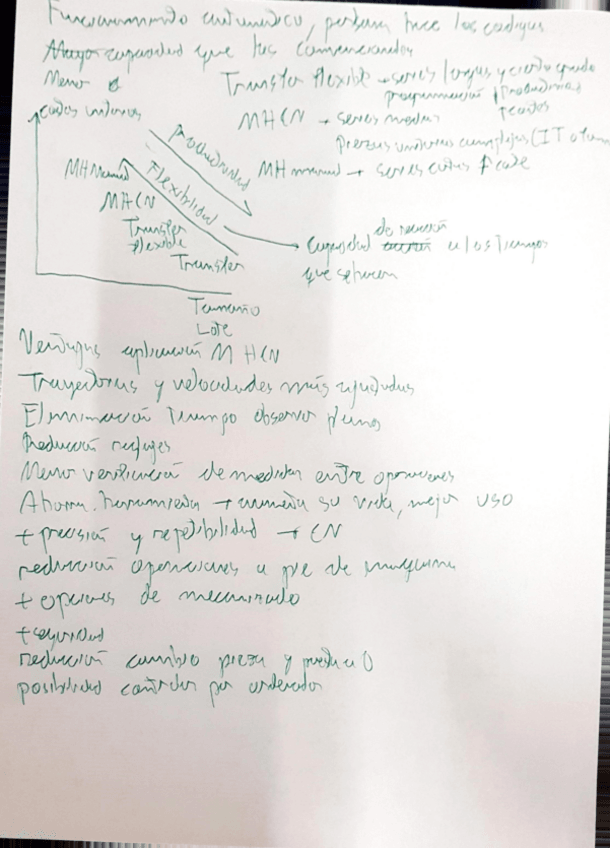 Funcionamiento automático, persona hace los codigos
Mayor capacidad que las convencionales
Menor
Transfer flexible → series largas y cierto grado
programación
MHCN → series medias
Piezas unitarias complejas (IT o
MH manual → series cortas
Costes unitarios
Productividad
Flexibilidad
MH Manual
MHCN
Transfer
flexible
Transfer
Capacidad de reacción a los tiempos
que se hacen
Tamaño
Lote
Ventajas aplicación MHCN
Trayectorias y velocidades más ajustadas
Eliminación Tiempo observar planos
Reducción
Menor verificación de medidas entre operaciones
Ahorra herramienta → aumenta su vida, mejor uso
+ precisión y repetibilidad → CN
reducción operaciones a pie de maquina
+ opciones de mecanizado
+ seguridad
reducción cambio pieza y
posibilidad controlar por ordenador